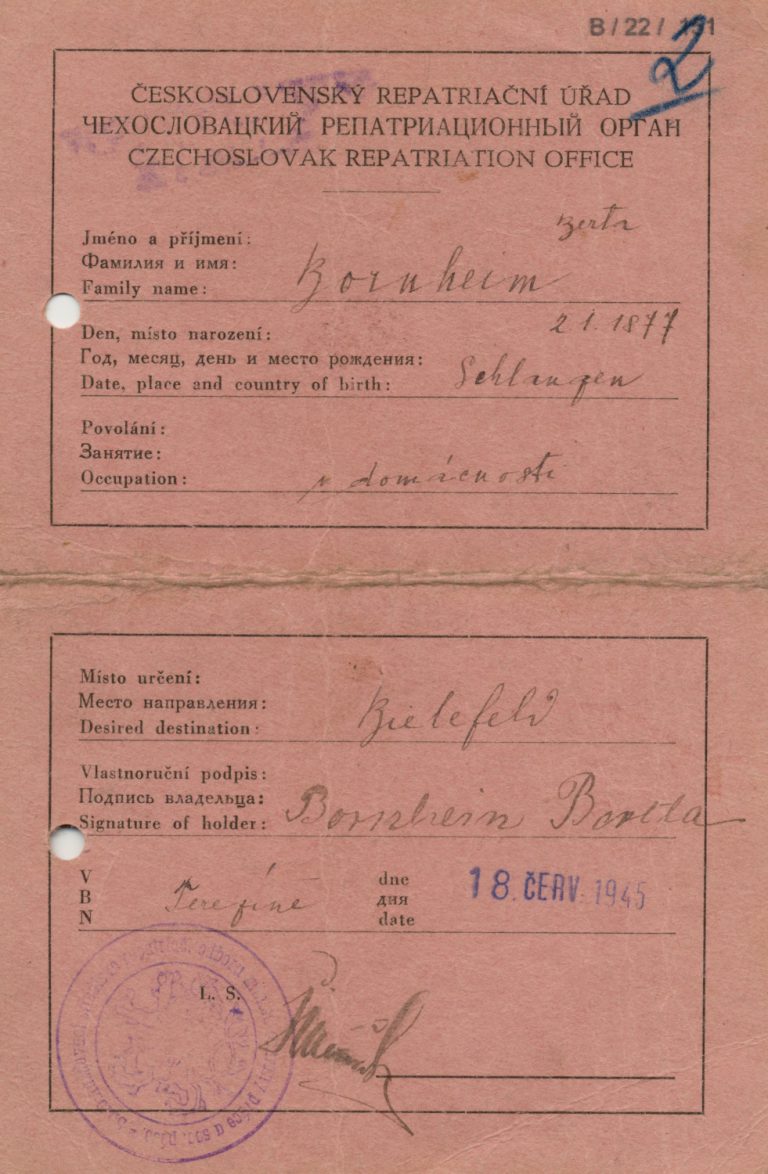 B/22/
2
ČESKOSLOVENSKÝ REPATRIAČNÍ ÚŘAD
ЧЕХОСЛОВАЦКИЙ РЕПАТРИАЦИОННЫЙ ОРГАН
CZECHOSLOVAK REPATRIATION OFFICE
Berta
Jméno a příjmení:
Фамилия и имя:
Family name: Bornheim
Den, místo narození: 21.1877
Год, месяц, день и место рождения:
Date, place and country of birth: Schlangen
Povolání:
Занятие:
Occupation: v domácnosti
Místo určení:
Место направления:
Desired destination: Bielefeld
Vlastnoruční podpis:
Подпись владельца:
Signature of holder: Bornheim Berta
V dne
В Terezíně дня 18. ČERV. 1945
N date
L. S.